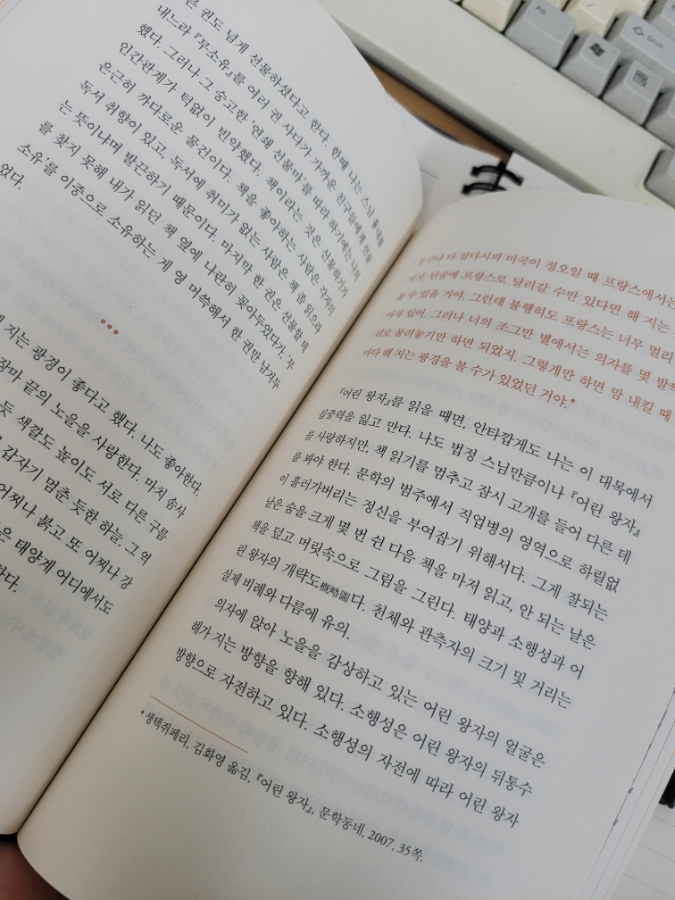 은 권도 넘게 선물하셨다고 한다. 한때 나는 스님 흉내를
내느라 『무소유』를 여러 권 사다가 가까운 친구들에게 선물
했다. 그러나 그 숭고한 '연쇄 선물마'를 따라 하기에는 나의
인간관계가 턱없이 빈약했다. 책이라는 것은 선물하기가
은근히 까다로운 물건이다. 책을 좋아하는 사람은 각자의
독서 취향이 있고, 독서에 취미가 없는 사람은 책 좀 읽으라
는 뜻이냐며 발끈하기 때문이다. 마지막 한 권은 선물할 때
를 찾지 못해 내가 읽던 책 옆에 나란히 꽂아두었다가, '무
소유'를 이중으로 소유하는 게 영 머쓱해서 한 권만 남겨두
었다.
해 지는 광경이 좋다고 했다. 나도 좋아한다.
장마 끝의 노을을 사랑한다. 마치 솜사
듯 색깔도 높이도 서로 다른 구름
갑자기 멈춘 듯한 하늘. 그 억
어찌나 붉고 또 어찌나 강
은 태양계 어디에서도
하다.
누구나 다 알다시피 미국이 정오일 때 프랑스에서는
거지. 단숨에 프랑스로 달려갈 수만 있다면 해 지는
볼 수 있을 거야. 그런데 불행히도 프랑스는 너무 멀리
어져 있어. 그러나 너의 조그만 별에서는 의자를 몇 발짝
뒤로 물려놓기만 하면 되었지. 그렇게만 하면 맘 내킬 때
마다 해 지는 광경을 볼 수가 있었던 거야.*
『어린 왕자』를 읽을 때면, 안타깝게도 나는 이 대목에서
집중력을 잃고 만다. 나도 법정 스님만큼이나 『어린 왕자』
를 사랑하지만, 책 읽기를 멈추고 잠시 고개를 들어 다른 데
를 봐야 한다. 문학의 범주에서 직업병의 영역으로 하릴없
이 흘러가버리는 정신을 부여잡기 위해서다. 그게 잘되는
날은 숨을 크게 몇 번 쉰 다음 책을 마저 읽고, 안 되는 날은
책을 덮고 머릿속으로 그림을 그린다. 태양과 소행성과 어
린 왕자의 개략도槪略圖다. 천체와 관측자의 크기 및 거리는
실제 비례와 다름에 유의.
의자에 앉아 노을을 감상하고 있는 어린 왕자의 얼굴은
해가 지는 방향을 향해 있다. 소행성은 어린 왕자의 뒤통수
방향으로 자전하고 있다. 소행성의 자전에 따라 어린 왕자
* 생텍쥐페리, 김화영 옮김, 『어린 왕자』, 문학동네, 2007, 35쪽.
Shift